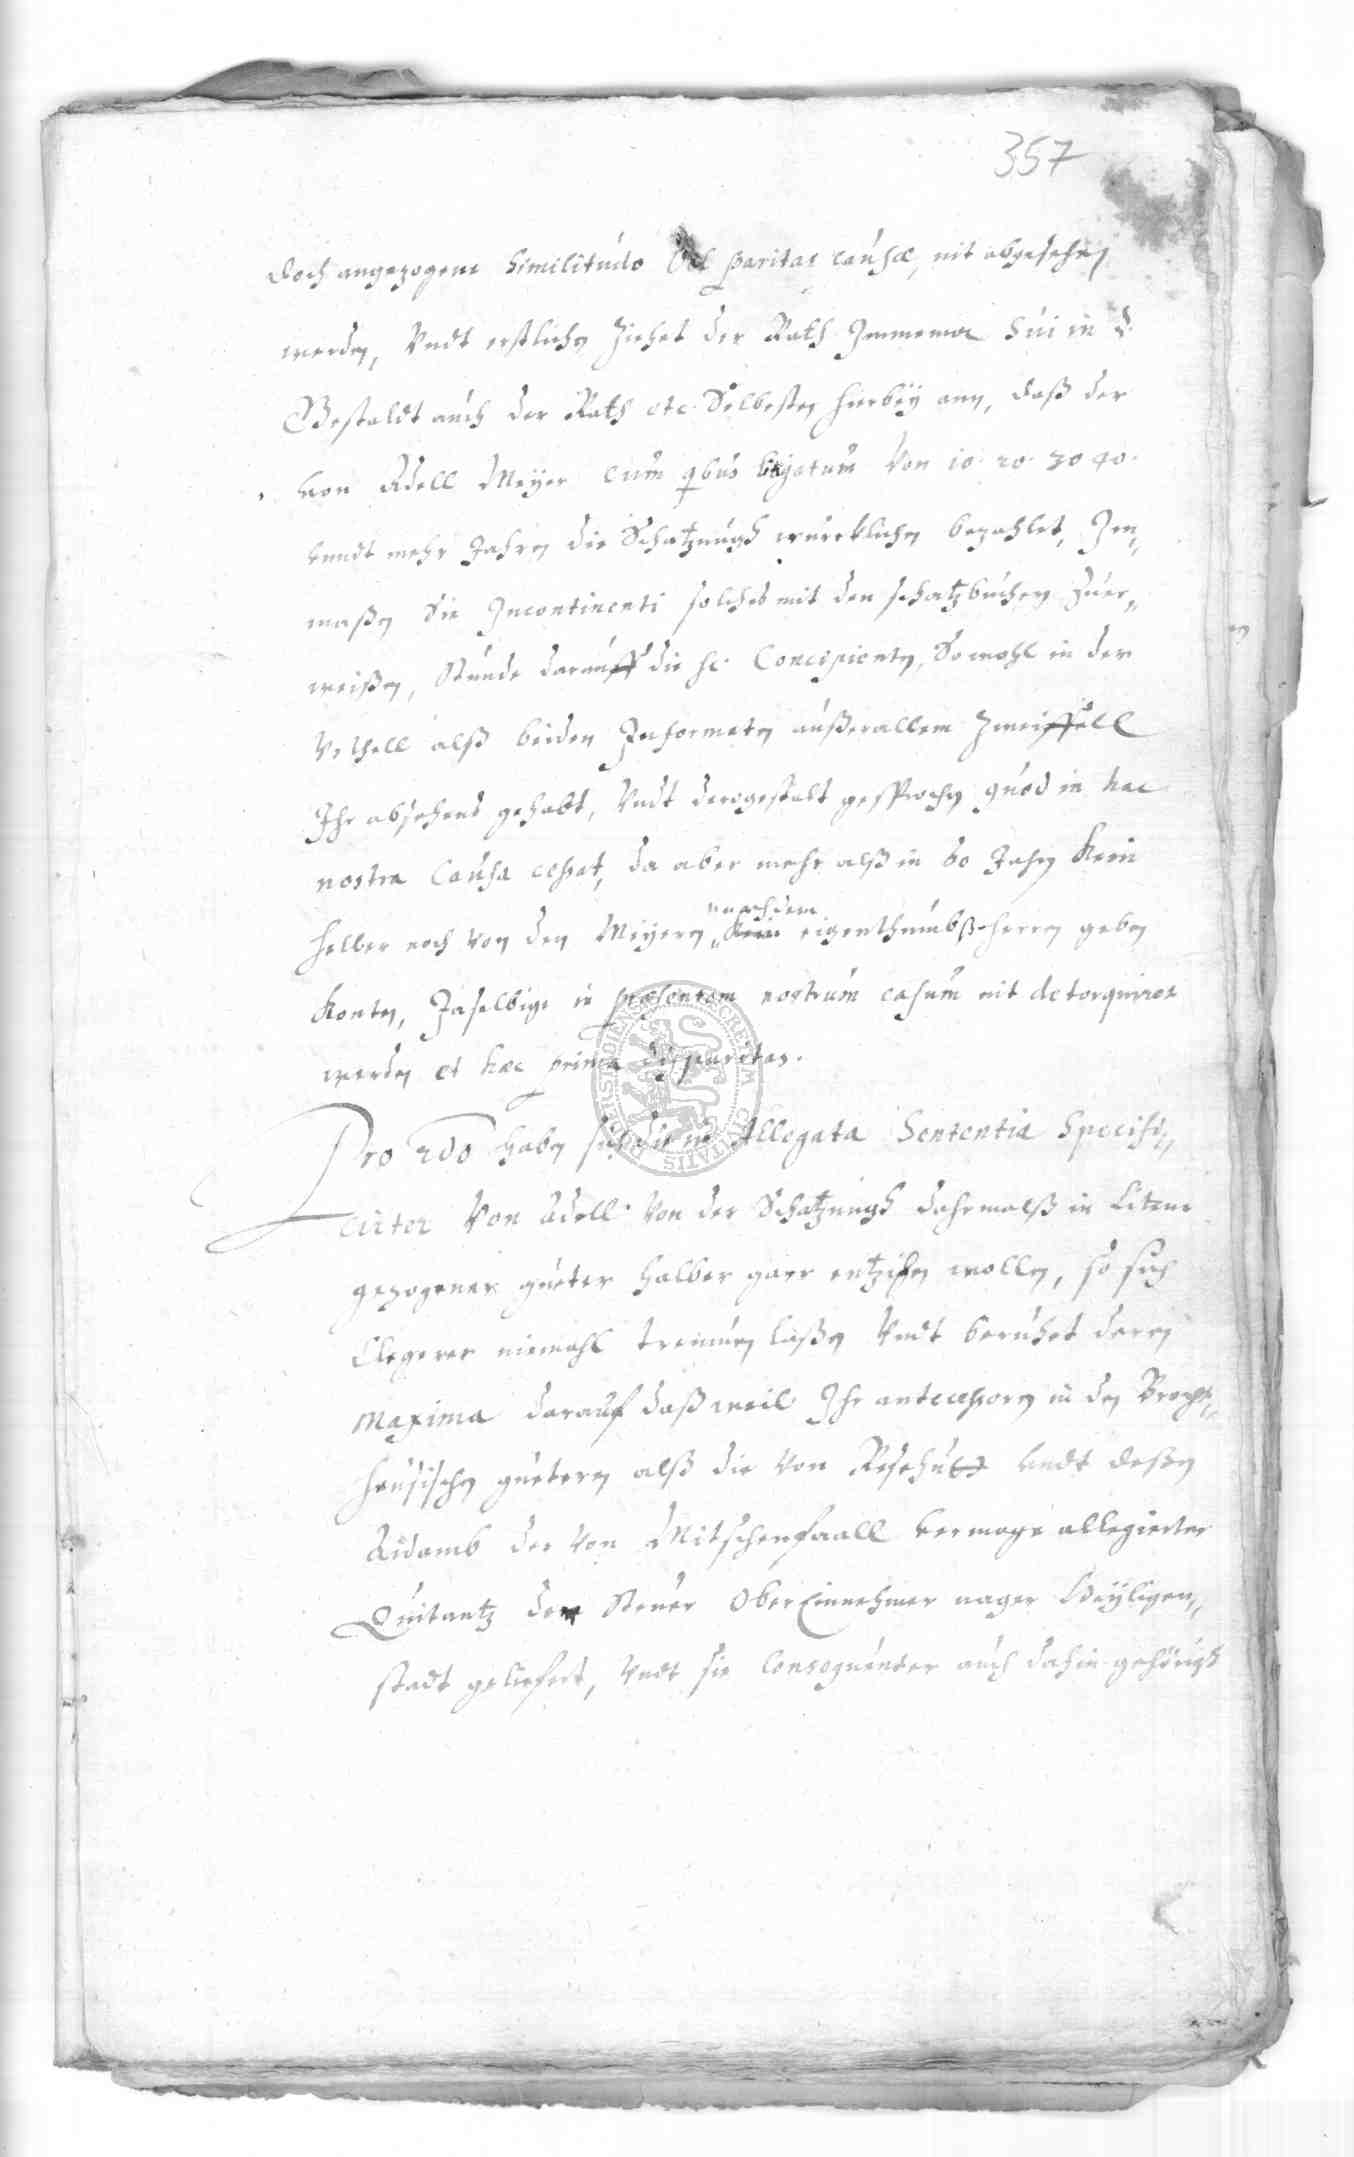 357
doch angezogene Similitudo vel paritas causæ, nit abgesehen
werden, Undt erstlichen ziehet der Rath Immemor sui in d.
Gestaldt auch der Rath etc. Selbesten hierbey ann, daß der
von Adell Meyer cum quibus litigatum von 10. 20. 30 40.
unndt mehr Jahren die Schatzungh würcklichen bezahlet, Jn„
maßen Sie Incontinenti solches mit den schatzbüchern zuer„
weißen, Stünde darauff die H. Concipienten, Sowohl in der
Urthell alß beiden Informaten außer allem Zweiffell
Ihr absehens gehabt, Undt derogestalt gesprochen quod in hac
nostra Causa cessat, da aber mehr alß in 60 Jahren Kein
heller noch von den Meyern, nachdem eigenthumbß herren geben
Konten, Jaselbige in præsentem nostrum casum nit detorquiret
werden et hæc prima disparitas.
Pro 2do haben sich die in Allegata Sententia Specifi„
cirter von Adell von der Schatzungh dahrmalß in Litem
gezogener güeter halber gaer entzihen wollen, so sich
Clegerer niemahl treumen laßen Undt beruhet deren
Maxima darauf daß weil Ihr antecessoren in den
heusischen güetern alß die von undt deßen
Aidamb der von Mitschenfaall vermoge allegierter
Quitantz der Steuer Ober Einnehmer nager Heyligen„
stadt geliefert, Undt sie Consequenter auch dahin gehörigh